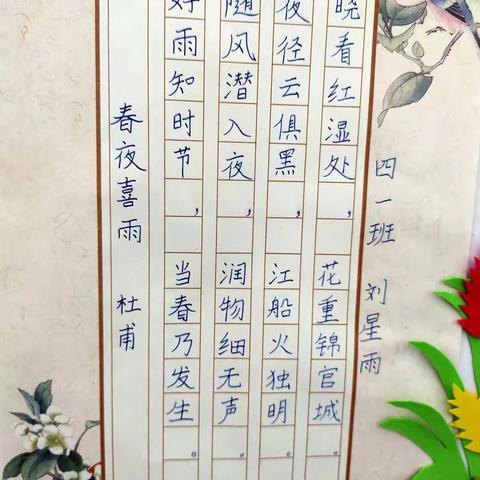 春夜喜雨 杜甫
好雨知时节，当春乃发生。
随风潜入夜，润物细无声。
夜径云俱黑，江船火独明。
晓看红湿处，花重锦官城。
四一班 刘星雨